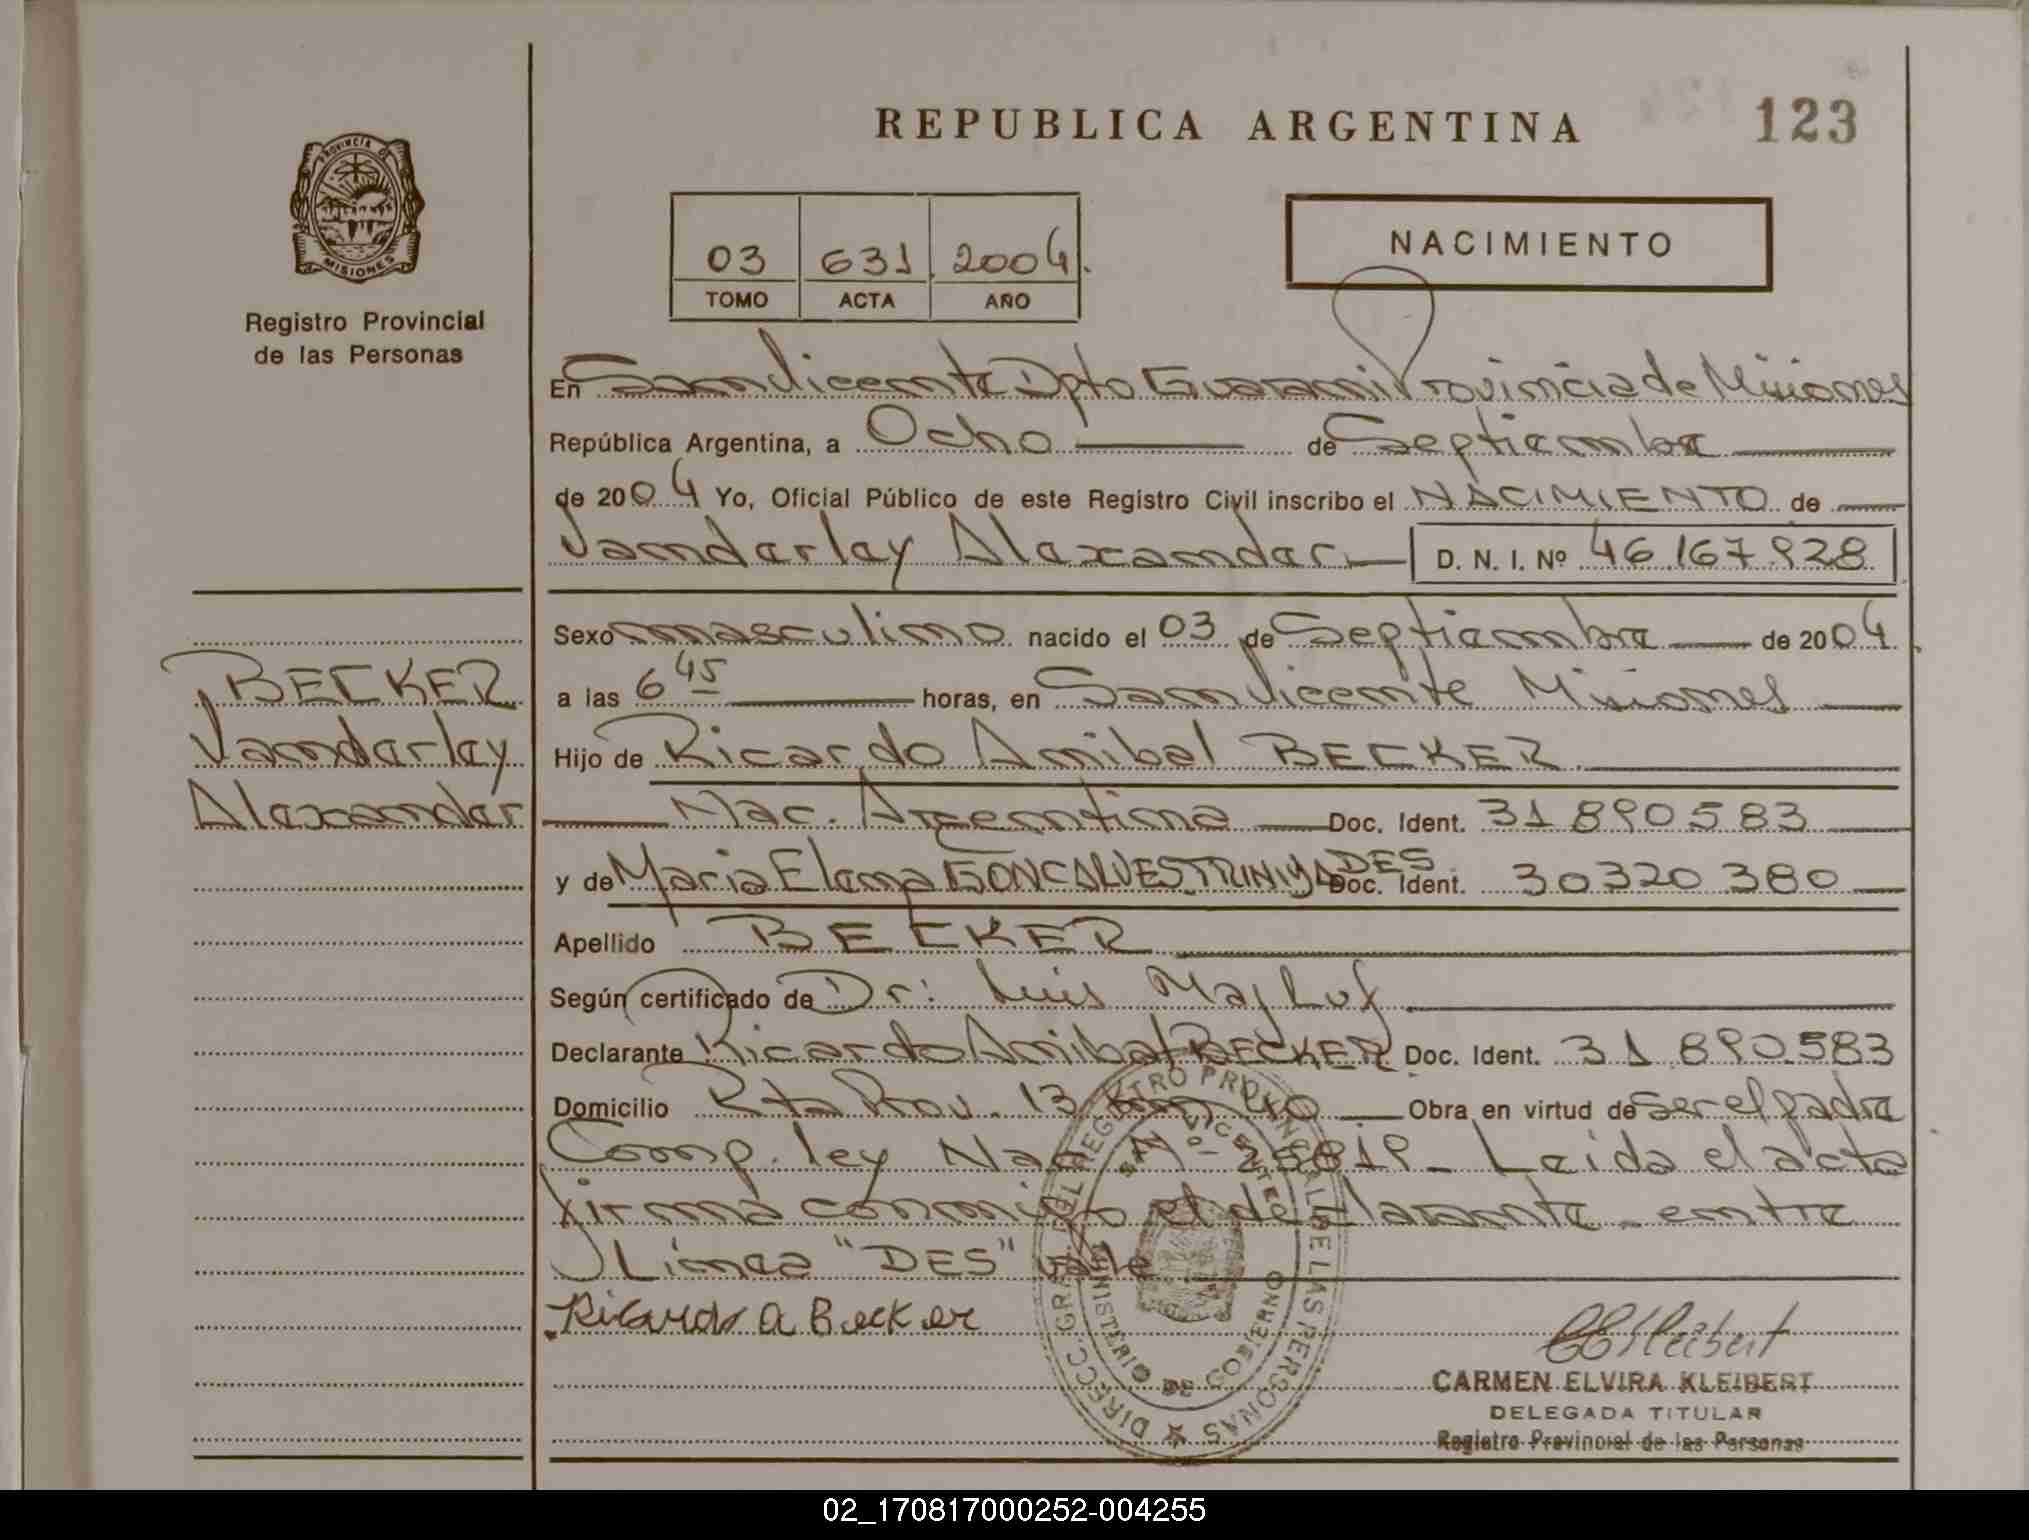 REPUBLICA ARGENTINA
123
PROVINCIA DE
MISIONES
Registro Provincial
de las Personas
03 631 2004.
TOMO ACTA AÑO
NACIMIENTO
En San Vicente Dpto Guarani Provincia de Misiones
República Argentina, a Ocho de Septiembre
de 2004 Yo, Oficial Público de este Registro Civil inscribo el NACIMIENTO de
Vanderley Alexander D. N. I. Nº 46.167.928
Sexo masculino nacido el 03 de Septiembre de 2004
a las 6 45 horas, en San Vicente Misiones
Hijo de Ricardo Anibal BECKER
Nac. Argentina Doc. Ident. 31 890 583
y de Maria Elena GONCALVES TRINDADES Doc. Ident. 30320 380
Apellido BECKER
Según certificado de Dr: Luis Majluf
Declarante Ricardo Anibal BECKER Doc. Ident. 31 890.583
Domicilio Rta Prov. 13 Obra en virtud de ser el padre
Comp. ley Nac Nº 25819 - Leida el acta
firma conmigo el declarante - entre
Linea "DES" vale
Ricardo A Becker
BECKER
Vanderley
Alexander
DIRECC. GRAL. DEL REGISTRO PROVINCIAL DE LAS PERSONAS
SAN VICENTE
MINISTERIO DE GOBIERNO
CARMEN ELVIRA KLEIBERT
DELEGADA TITULAR
Registro Provincial de las Personas
02_170817000252-004255